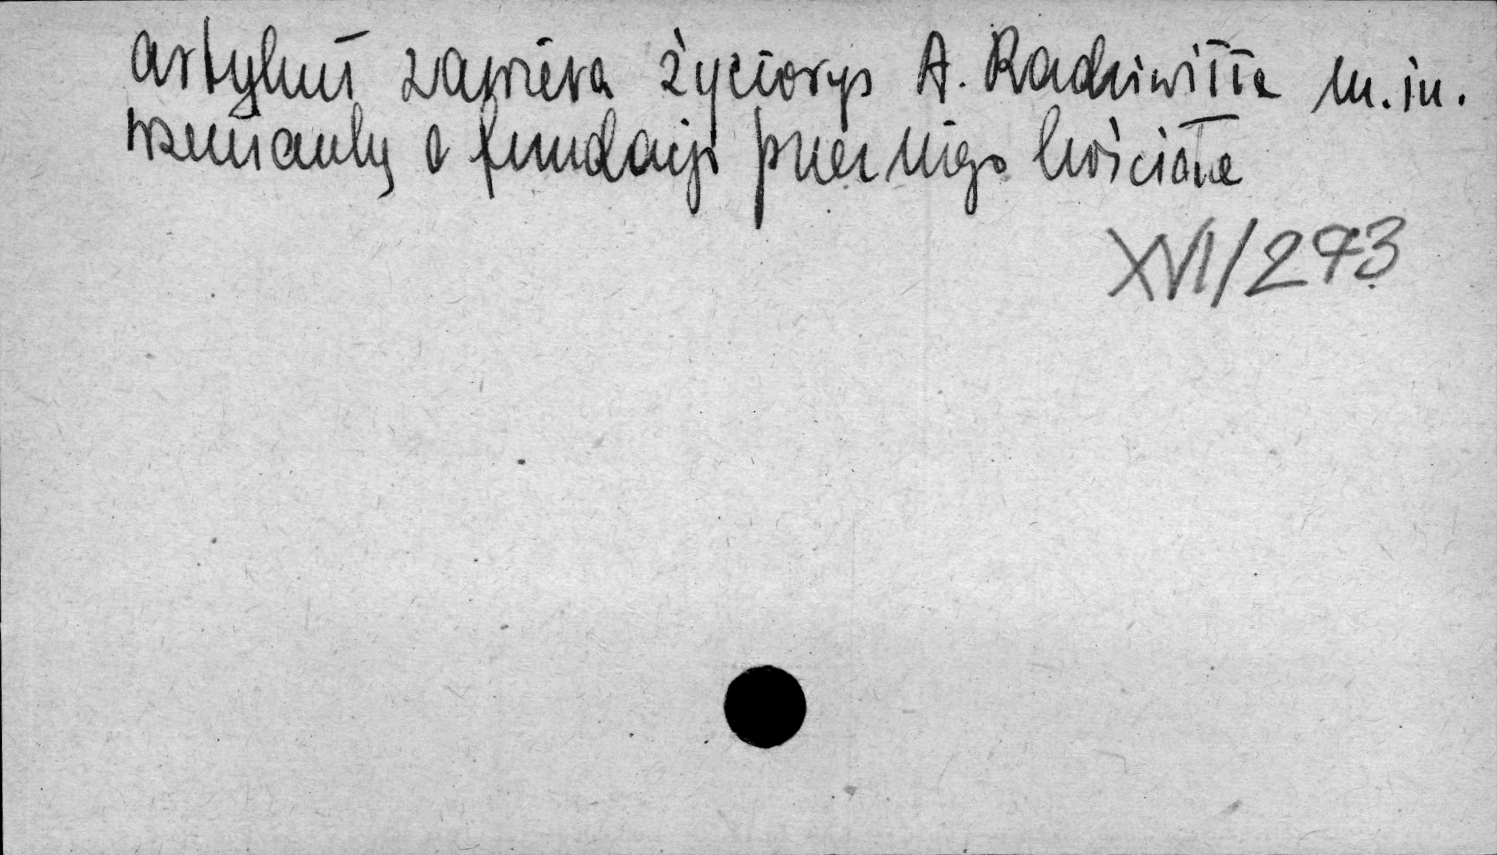 artykuł zawiera życiorys A. Radziwiłła m.in.
wzmianky o fundacji przez niego kościoła
XVI/273